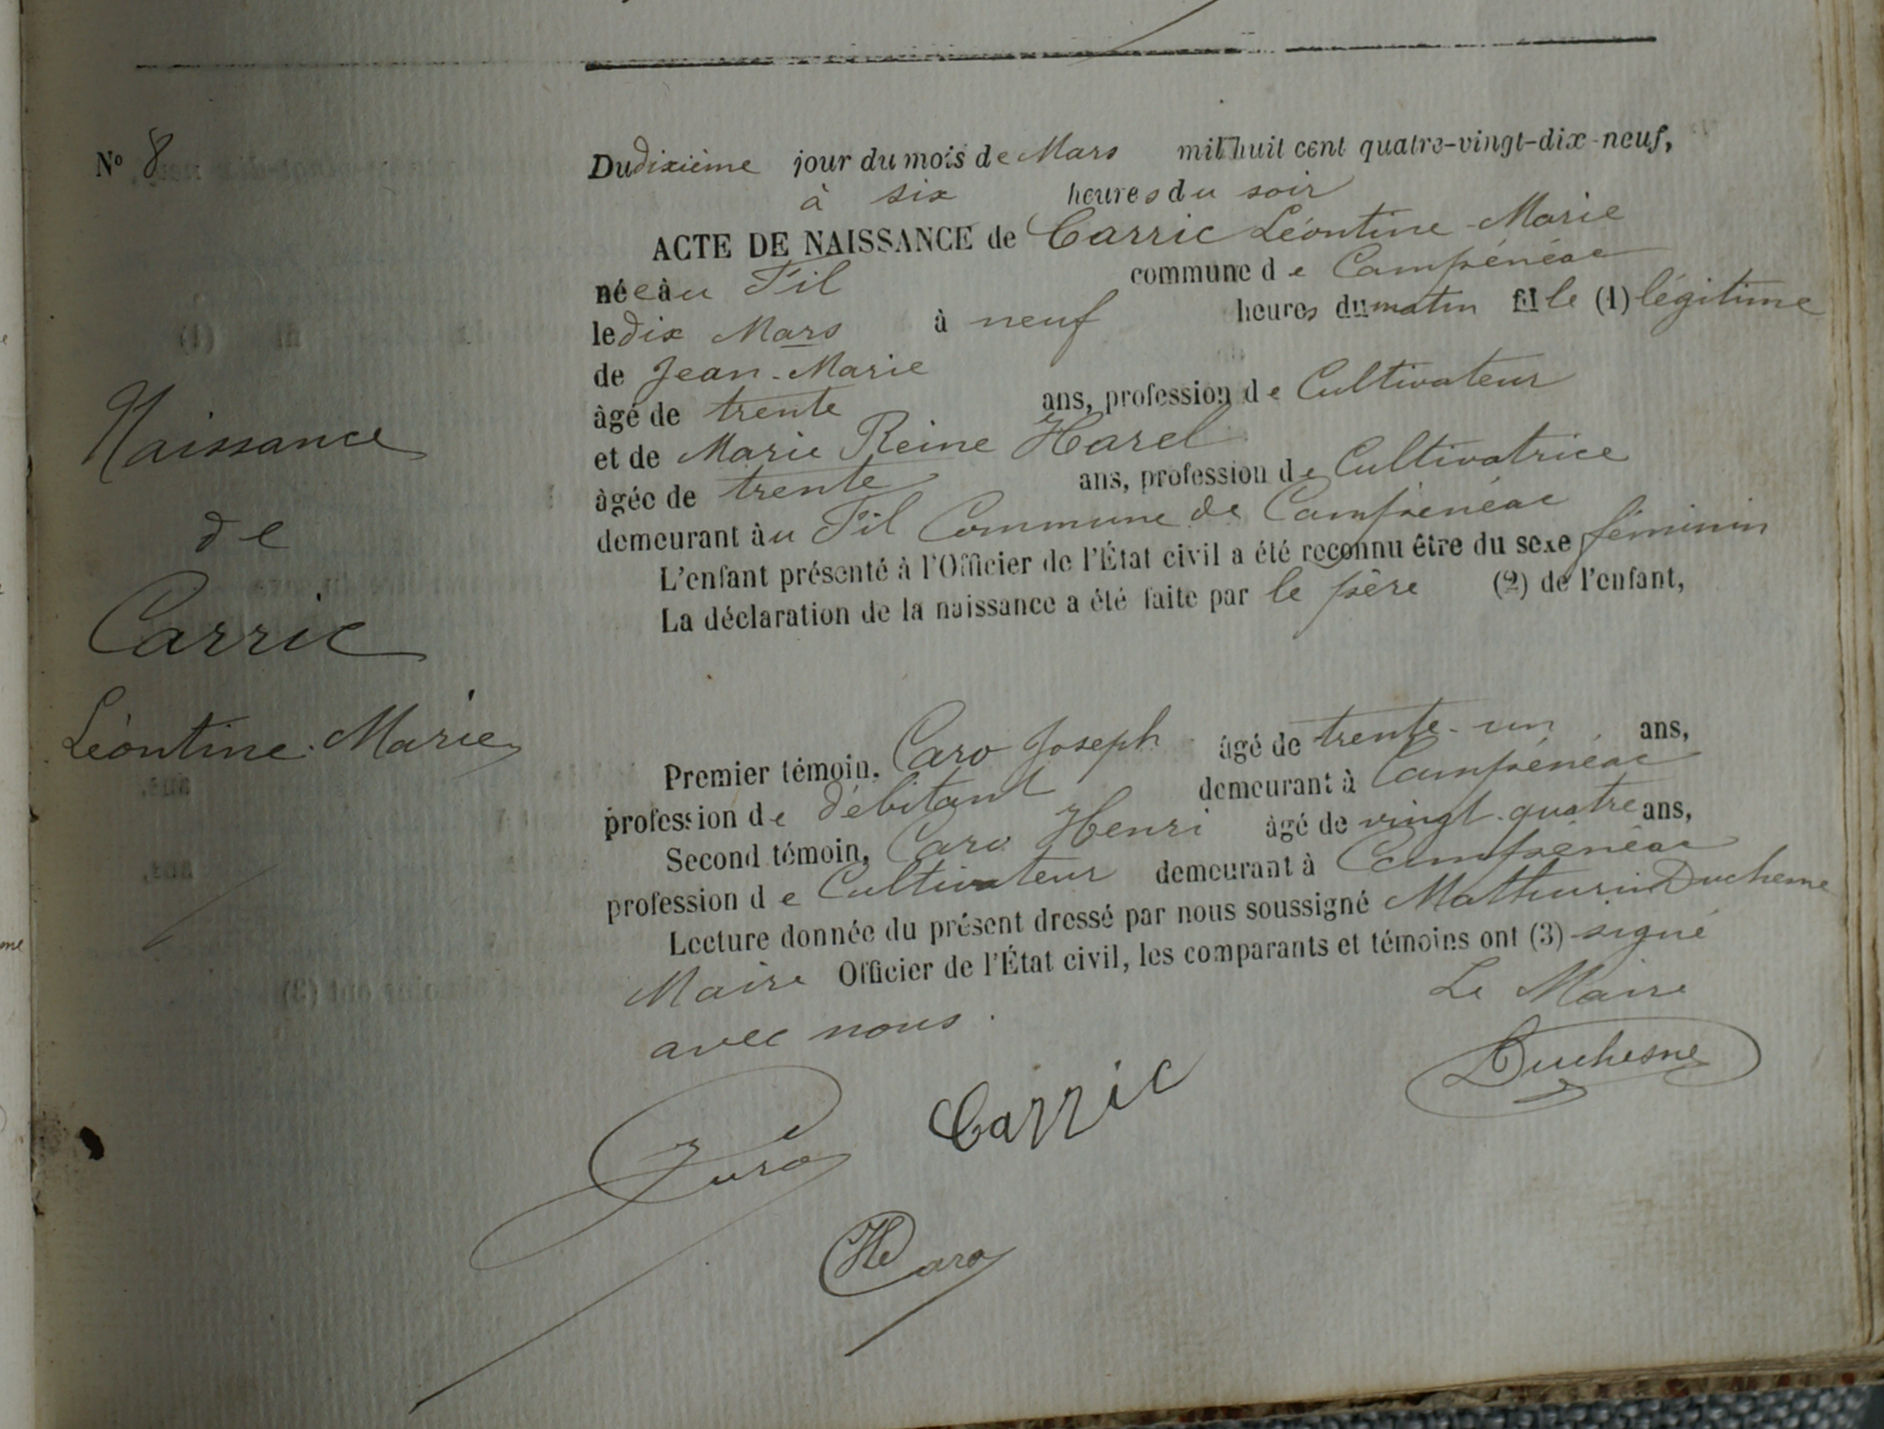 N° 8
Naissance
de
Carric
Léontine Marie
Du dixième jour du mois de Mars mil huit cent quatre-vingt-dix-neuf,
à six heures du soir
ACTE DE NAISSANCE de Carric Léontine Marie
née au Fil commune de Campénéac
le dix Mars à neuf heures du matin fille (1) légitime
de Jean-Marie
âgé de trente ans, profession de Cultivateur
et de Marie Reine Harel
âgée de trente ans, profession de Cultivatrice
demeurant au Fil Commune de Campénéac
L'enfant présenté à l'Officier de l'État civil a été reconnu être du sexe féminin
La déclaration de la naissance a été faite par le père (2) de l'enfant,
Premier témoin, Caro Joseph âgé de trente-un ans,
profession de débitant demeurant à Campénéac
Second témoin, Caro Henri âgé de vingt-quatre ans,
profession de Cultivateur demeurant à Campénéac
Lecture donnée du présent dressé par nous soussigné Mathurin Duchesne
Maire Officier de l'État civil, les comparants et témoins ont (3) signé
avec nous.
Le Maire
Duchesne
Carric
Caro
H Caro